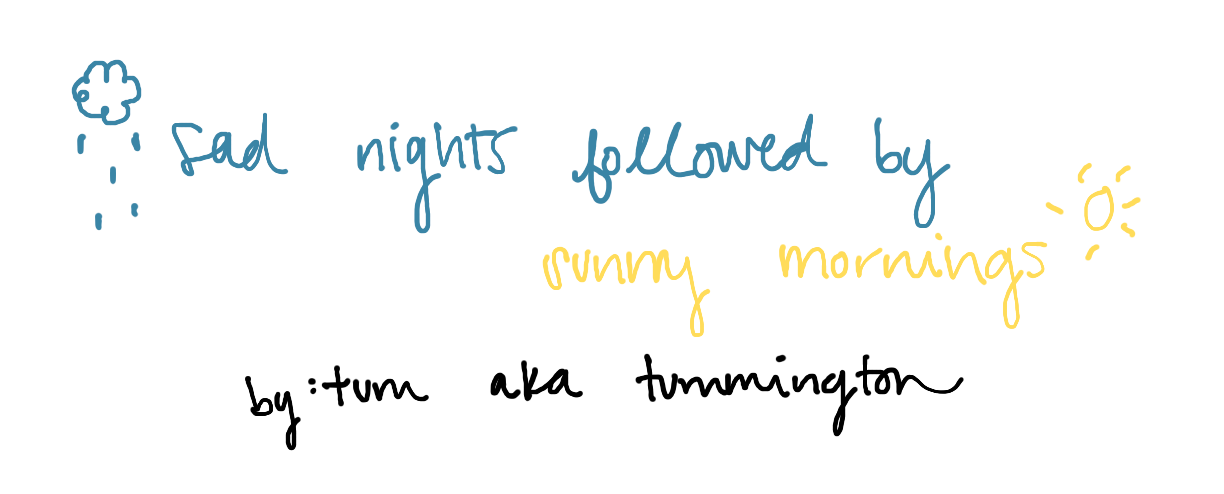 sad nights followed by
sunny mornings
by: tum aka tummington